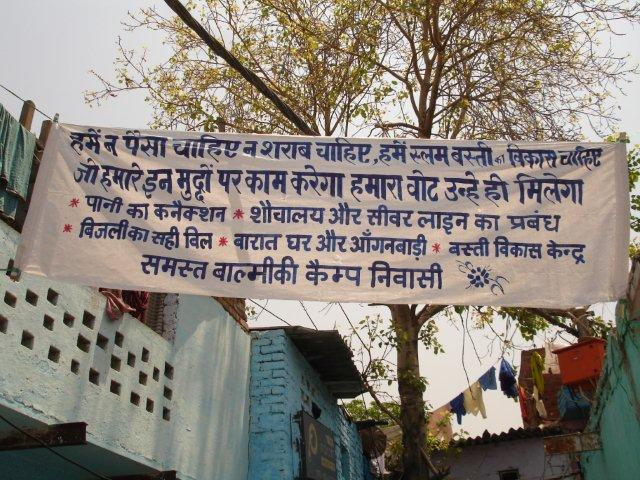 हमें न पैसा चाहिए न शराब चाहिए, हमें स्लम बस्ती का विकास चाहिए
जो हमारे इन मुद्दों पर काम करेगा हमारा वोट उन्हे ही मिलेगा
* पानी का कनैक्शन * शौचालय और सीवर लाइन का प्रबंध
* बिजली का सही बिल * बारात घर और आँगनबाड़ी * बस्ती विकास केन्द्र
समस्त बाल्मीकी कैम्प निवासी